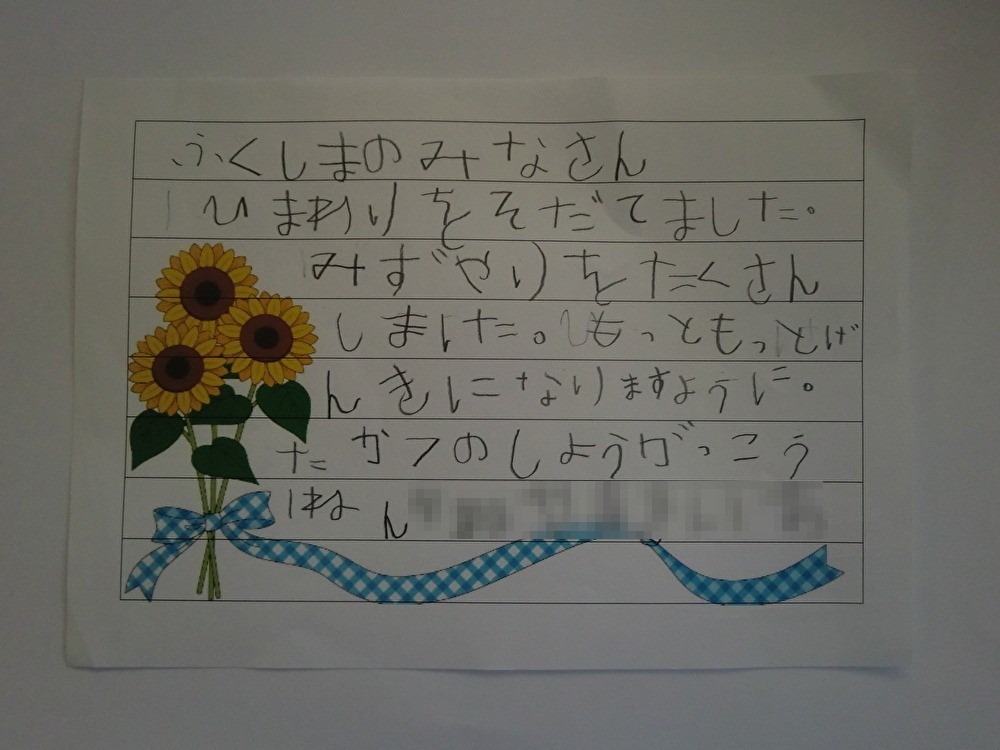 ふくしまのみなさん
ひまわりをそだてました。
みずやりをたくさん
しました。もっともっとげ
んきになりますように。
たかつのしょうがっこう
1ねん